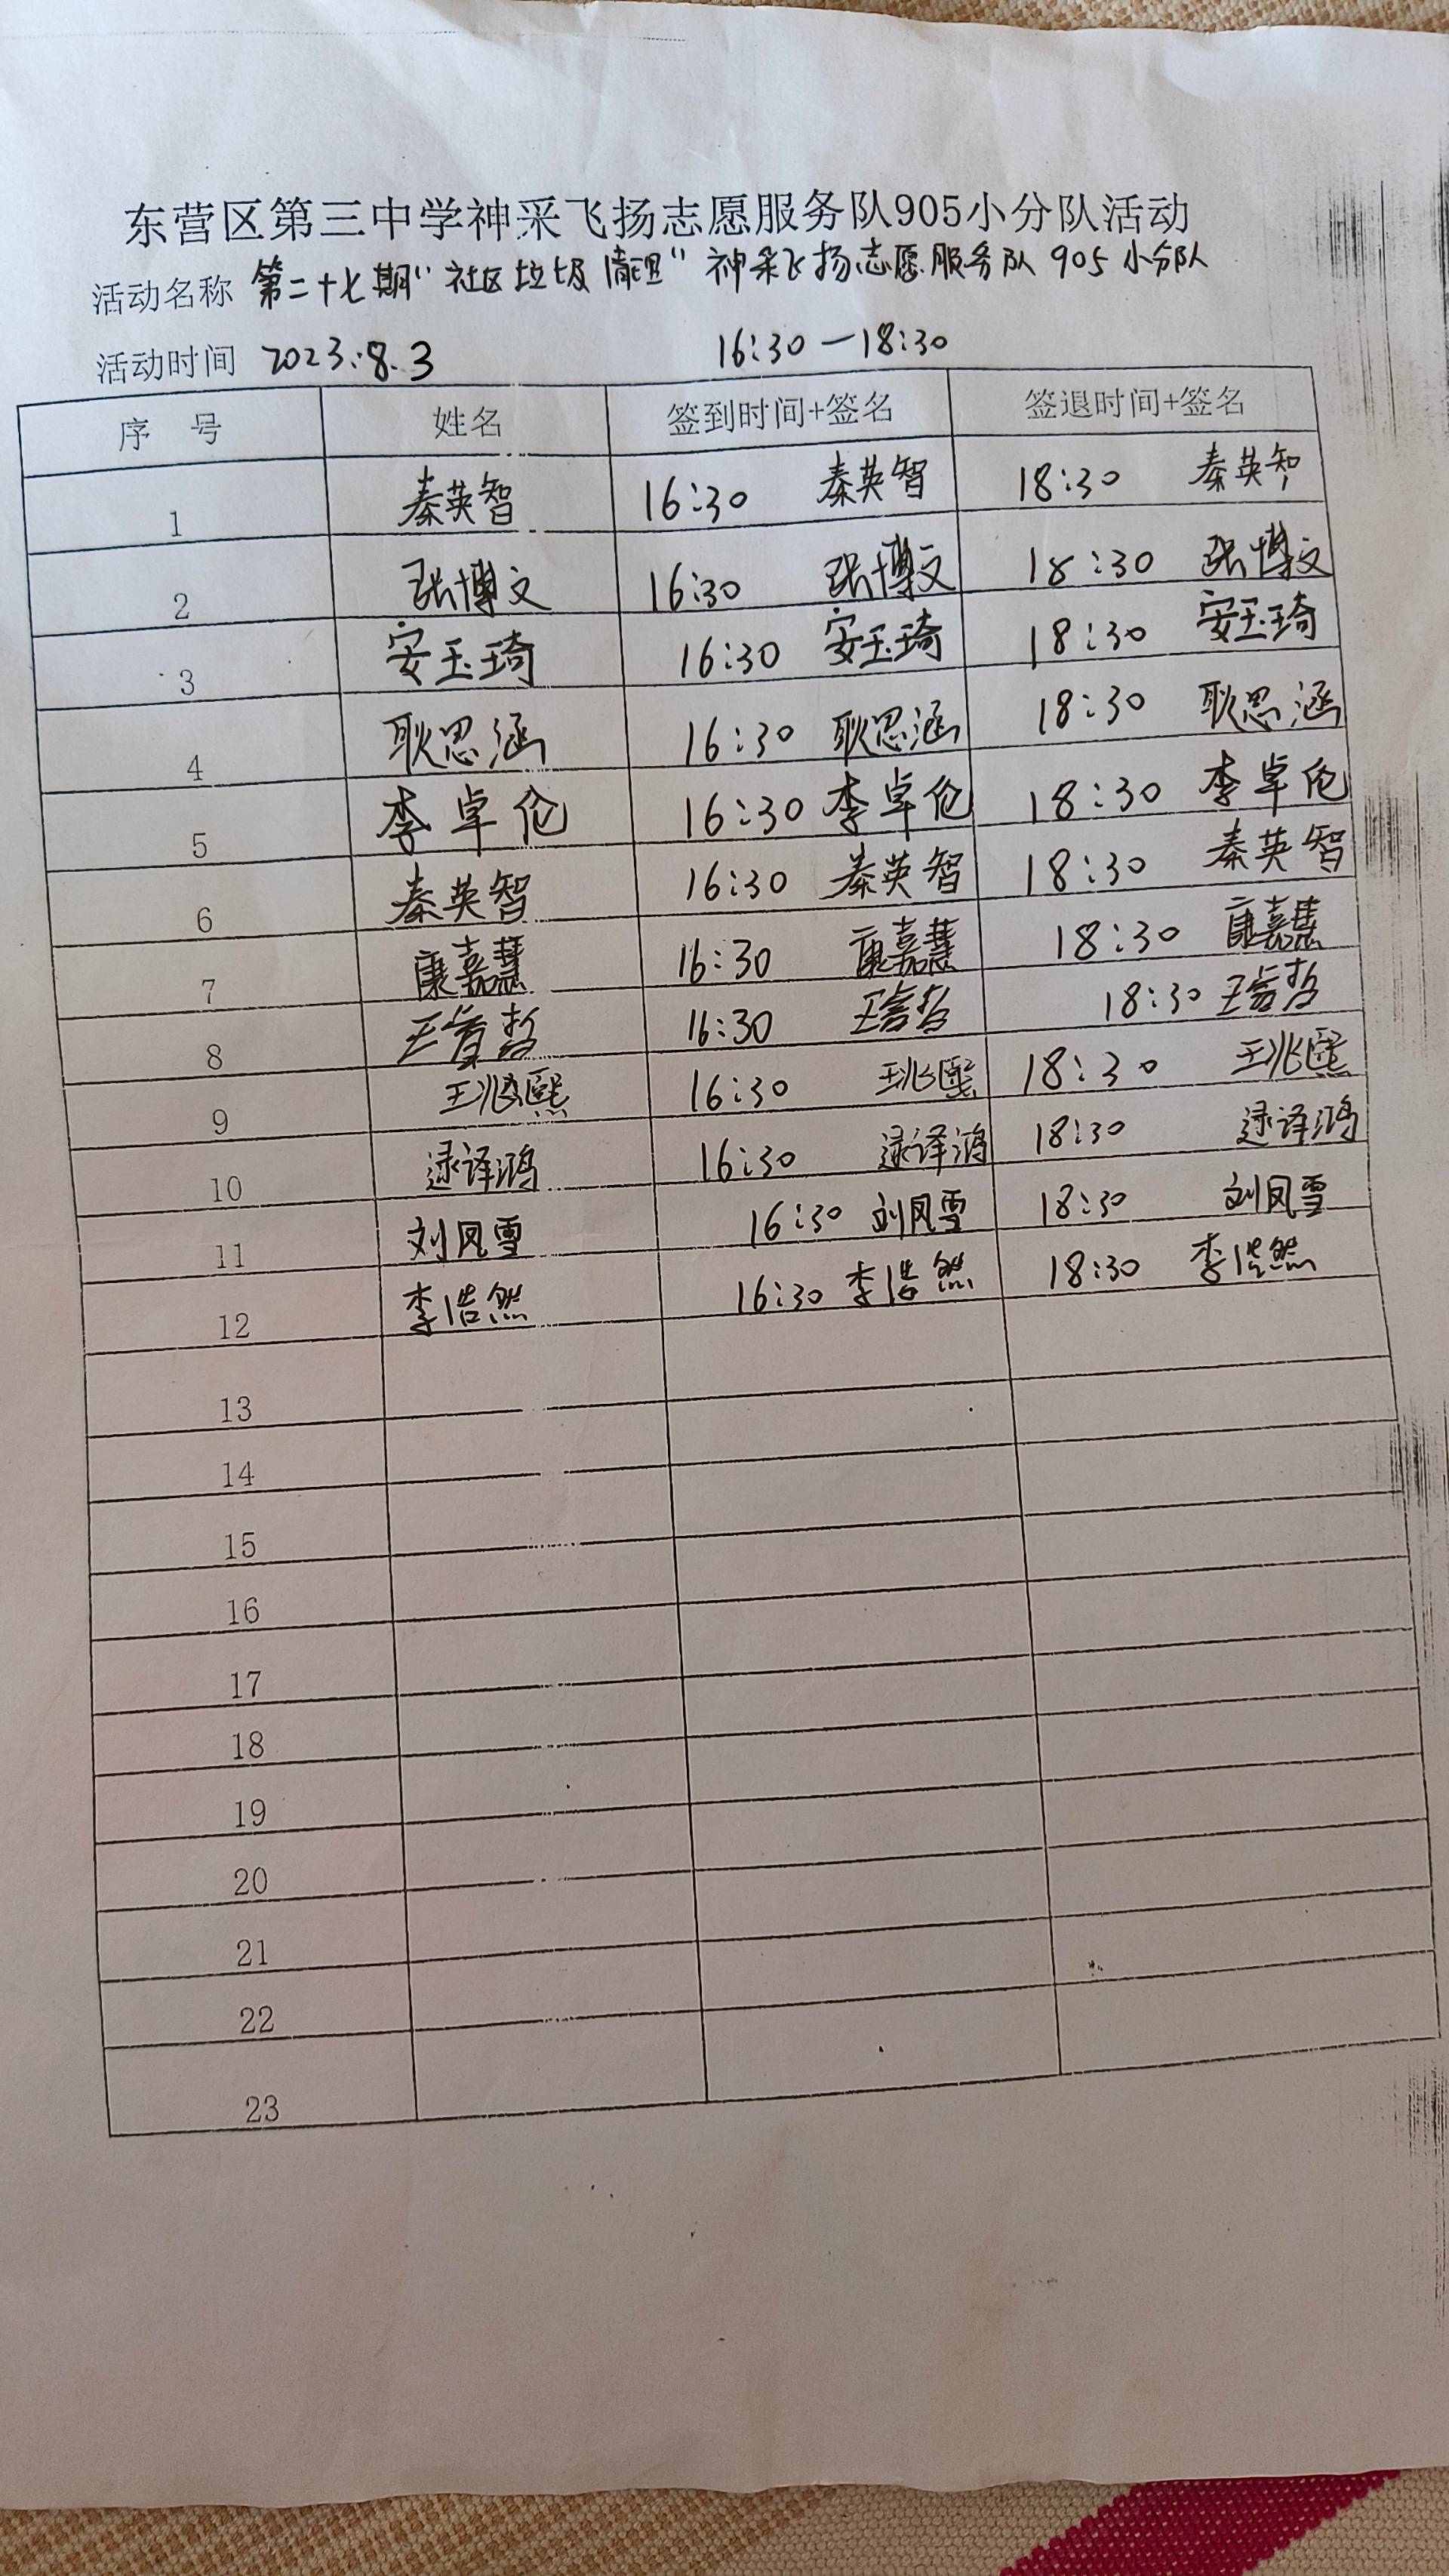 东营区第三中学神采飞扬志愿服务队905小分队活动
活动名称 第二十七期“社区垃圾清理”神采飞扬志愿服务队905小分队
活动时间 2023.8.3 16:30—18:30
序 号 姓名 签到时间+签名 签退时间+签名
1 秦英智 16:30 秦英智 18:30 秦英智
2 张博文 16:30 张博文 18:30 张博文
3 安玉琦 16:30 安玉琦 18:30 安玉琦
4 耿思涵 16:30 耿思涵 18:30 耿思涵
5 李卓伦 16:30 李卓伦 18:30 李卓伦
6 秦英智 16:30 秦英智 18:30 秦英智
7 康嘉慧 16:30 康嘉慧 18:30 康嘉慧
8 16:30 18:30
9 王兆熙 16:30 王兆熙 18:30 王兆熙
10 逯译鸿 16:30 逯译鸿 18:30 逯译鸿
11 刘凤雪 16:30 刘凤雪 18:30 刘凤雪
12 李浩然 16:30 李浩然 18:30 李浩然
13
14
15
16
17
18
19
20
21
22
23